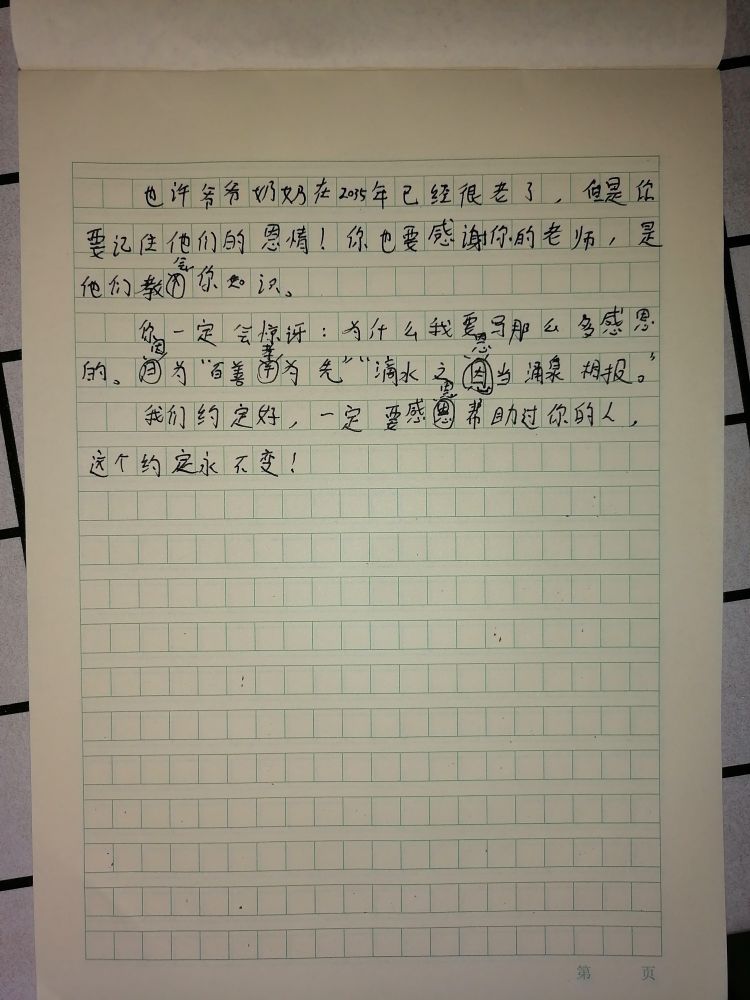 也许爷爷奶奶在2035年已经很老了，但是你
要记住他们的恩情！你也要感谢你的老师，是
会
他们教你知识。
你一定会惊讶：为什么我要写那么多感恩
因 孝 恩
的。因为“百善孝为先”“滴水之因当涌泉相报。”
恩
我们约定好，一定要感恩帮助过你的人，
这个约定永不变！
第 页